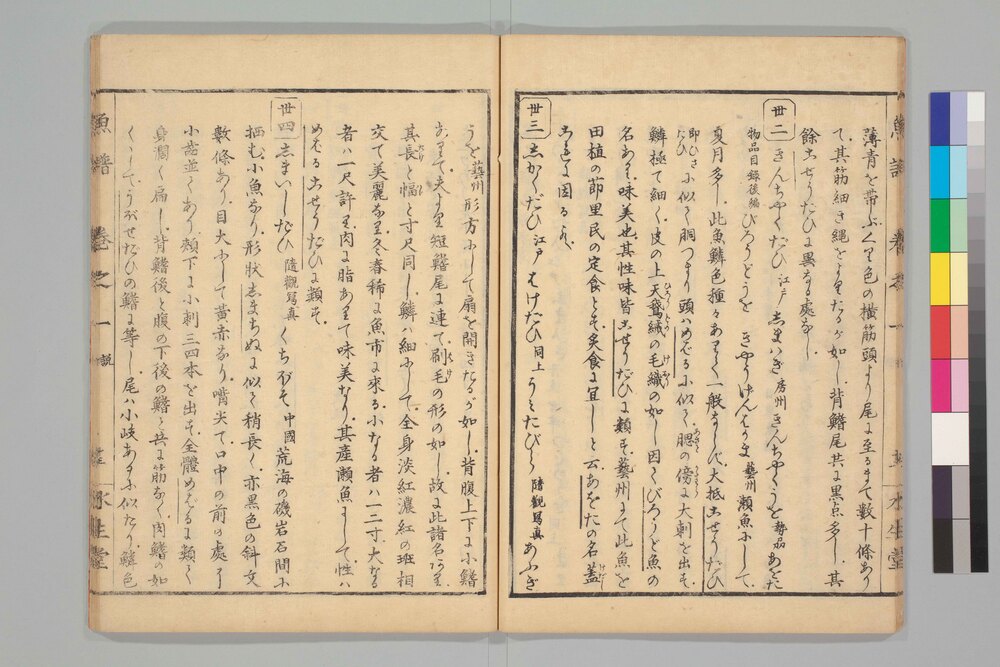 薄青を帯ぶくり色の横筋頭より尾に至るまで数十條あり
て、其筋細き縄をよりたるが如し、背鰭尾共に黒点多し、其
餘こせうだひに異なる處なし
卅二 きんちやくだひ 江戸 しまいき 房州 きんちやくうを 勢州 あをた
物品目録後編 びろうどうを きやうげんばかま 藝州 瀬魚にして、
夏月多し、此魚鱗色種々ありて一般ならず大抵こせうだひ
に似て胴つまり頭はめばるに似て、腮の傍に大刺を出す、
鱗極て細く、皮の上天鵞絨の毛織の如し因てびろうど魚の
名あり、味美也其性味皆こせうだひに類す、藝州にて此魚を
田植の節里民の定食とす炙食に宜しと云あをたの名蓋
これに因る乎、
卅三 しかくだひ 江戸 はけだひ 同上 うミたびら 隨觀寫真 あふぎ
うを 藝州 形方にして扇を開きたるが如し、背腹上下に小鰭
ありて夫より短鰭尾に連て刷毛の形の如し、故に此諸名あり、
其長と幅と寸尺同し、鱗ハ細にして、全身淡紅濃紅の斑相
交て美麗なり冬春稀に魚市に來る小なる者ハ一二寸、大なる
者ハ一尺許り、肉に脂ありて味美なり、其産瀬魚にして、性ハ
めばるこせうだひに類す、
卅四 しまいしだひ 隨觀寫真 くちぼそ 中國 荒海の磯岩石間に
栖む小魚なり、形状しまちぬに似て稍長く、赤黒色の斜文
數條あり、目大にして黄赤なり、嘴尖て口中の前の處より
小齒並てあり、頬下に小刺三四本を出す、全體めばるに類して
身濶く扁し、背鰭後と腹の下後の鰭と共に筋なく、肉鰭の如
くにして、うバぜたひの鰭に等し、尾ハ小岐あるに似たり、鱗色
魚譜 巻之一 説 水生堂